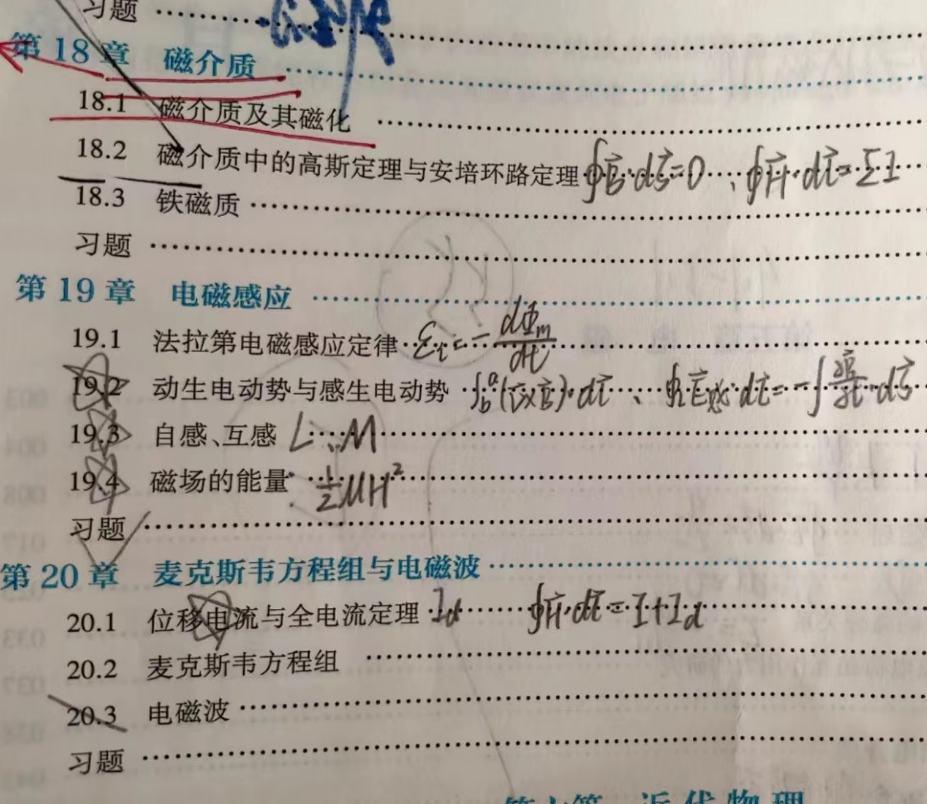 习题
第18章 磁介质
18.1 磁介质及其磁化
18.2 磁介质中的高斯定理与安培环路定理 ∮B⃗·dS⃗=0、∮H⃗·dl⃗=ΣI
18.3 铁磁质
习题
第19章 电磁感应
19.1 法拉第电磁感应定律 ε_i=-dΦ_m/dt
19.2 动生电动势与感生电动势 ∫_b^a(v⃗×B⃗)·dl⃗、∮_L E⃗感·dl⃗=-∫∂B⃗/∂t·dS⃗
19.3 自感、互感 L、M
19.4 磁场的能量 ½μH²
习题
第20章 麦克斯韦方程组与电磁波
20.1 位移电流与全电流定理 I_d ∮H⃗·dl⃗=I+I_d
20.2 麦克斯韦方程组
20.3 电磁波
习题
近代物理